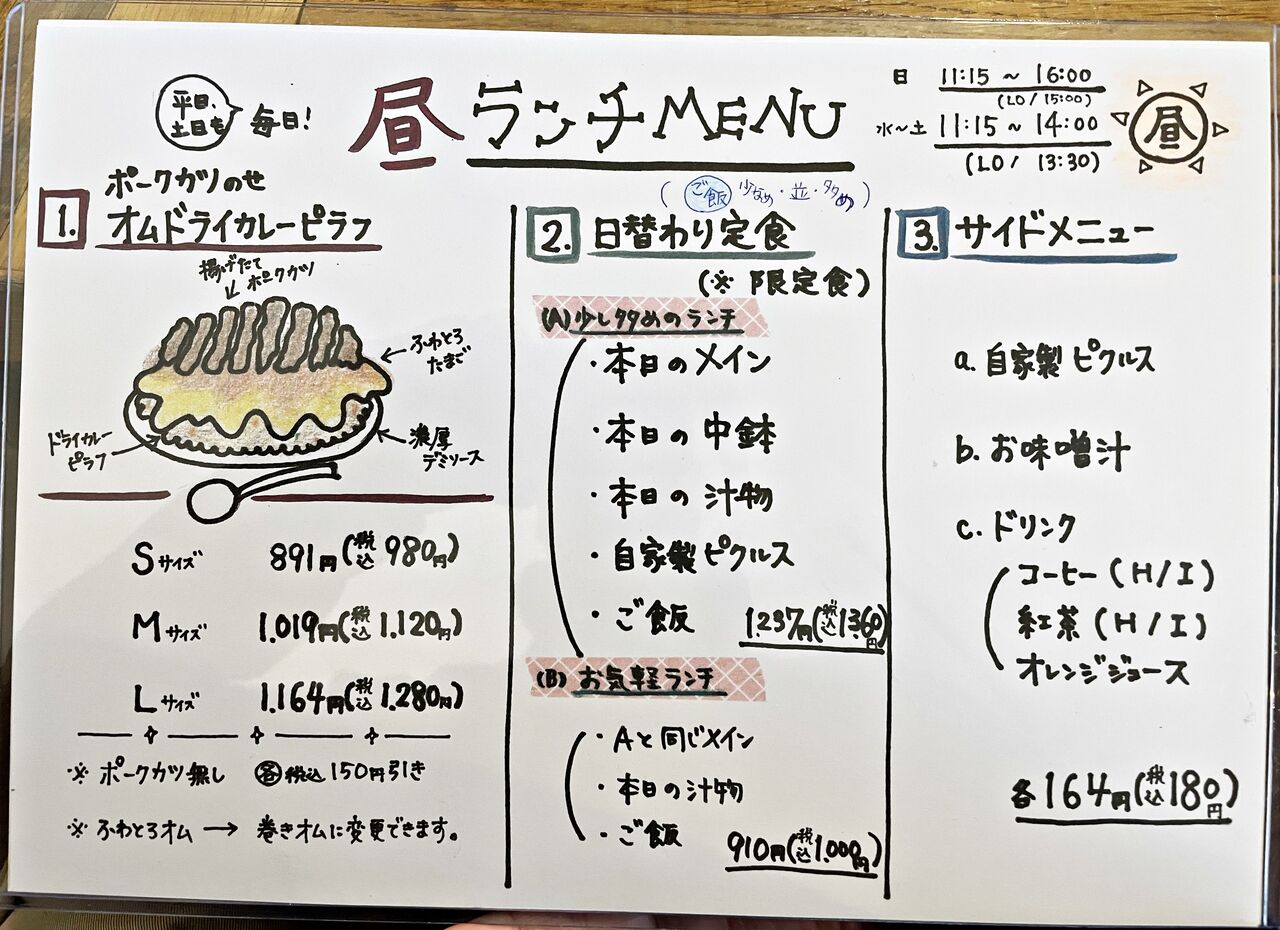 平日、土日も
毎日!
昼ランチMENU
日 11:15 ~ 16:00
(LO/ 15:00)
水~土 11:15 ~ 14:00
(LO/ 13:30)
昼
1. ポークカツのせ
オムドライカレーピラフ
揚げたて
ポークカツ
ふわとろ
たまご
ドライカレー
ピラフ
濃厚
デミソース
Sサイズ 891円(税込980円)
Mサイズ 1.019円(税込1.120円)
Lサイズ 1.164円(税込1.280円)
※ ポークカツ無し 各税込150円引き
※ ふわとろオム → 巻きオムに変更できます。
(ご飯 少なめ・並・多め)
2. 日替わり定食
(※ 限定食)
(A)少し多めのランチ
・本日のメイン
・本日の中鉢
・本日の汁物
・自家製ピクルス
・ご飯 1.237円(税込1360円)
(B)お気軽ランチ
・Aと同じメイン
・本日の汁物
・ご飯
910円(税込1.000円)
3. サイドメニュー
a. 自家製ピクルス
b. お味噌汁
c. ドリンク
コーヒー(H/I)
紅茶(H/I)
オレンジジュース
各164円(税込180円)